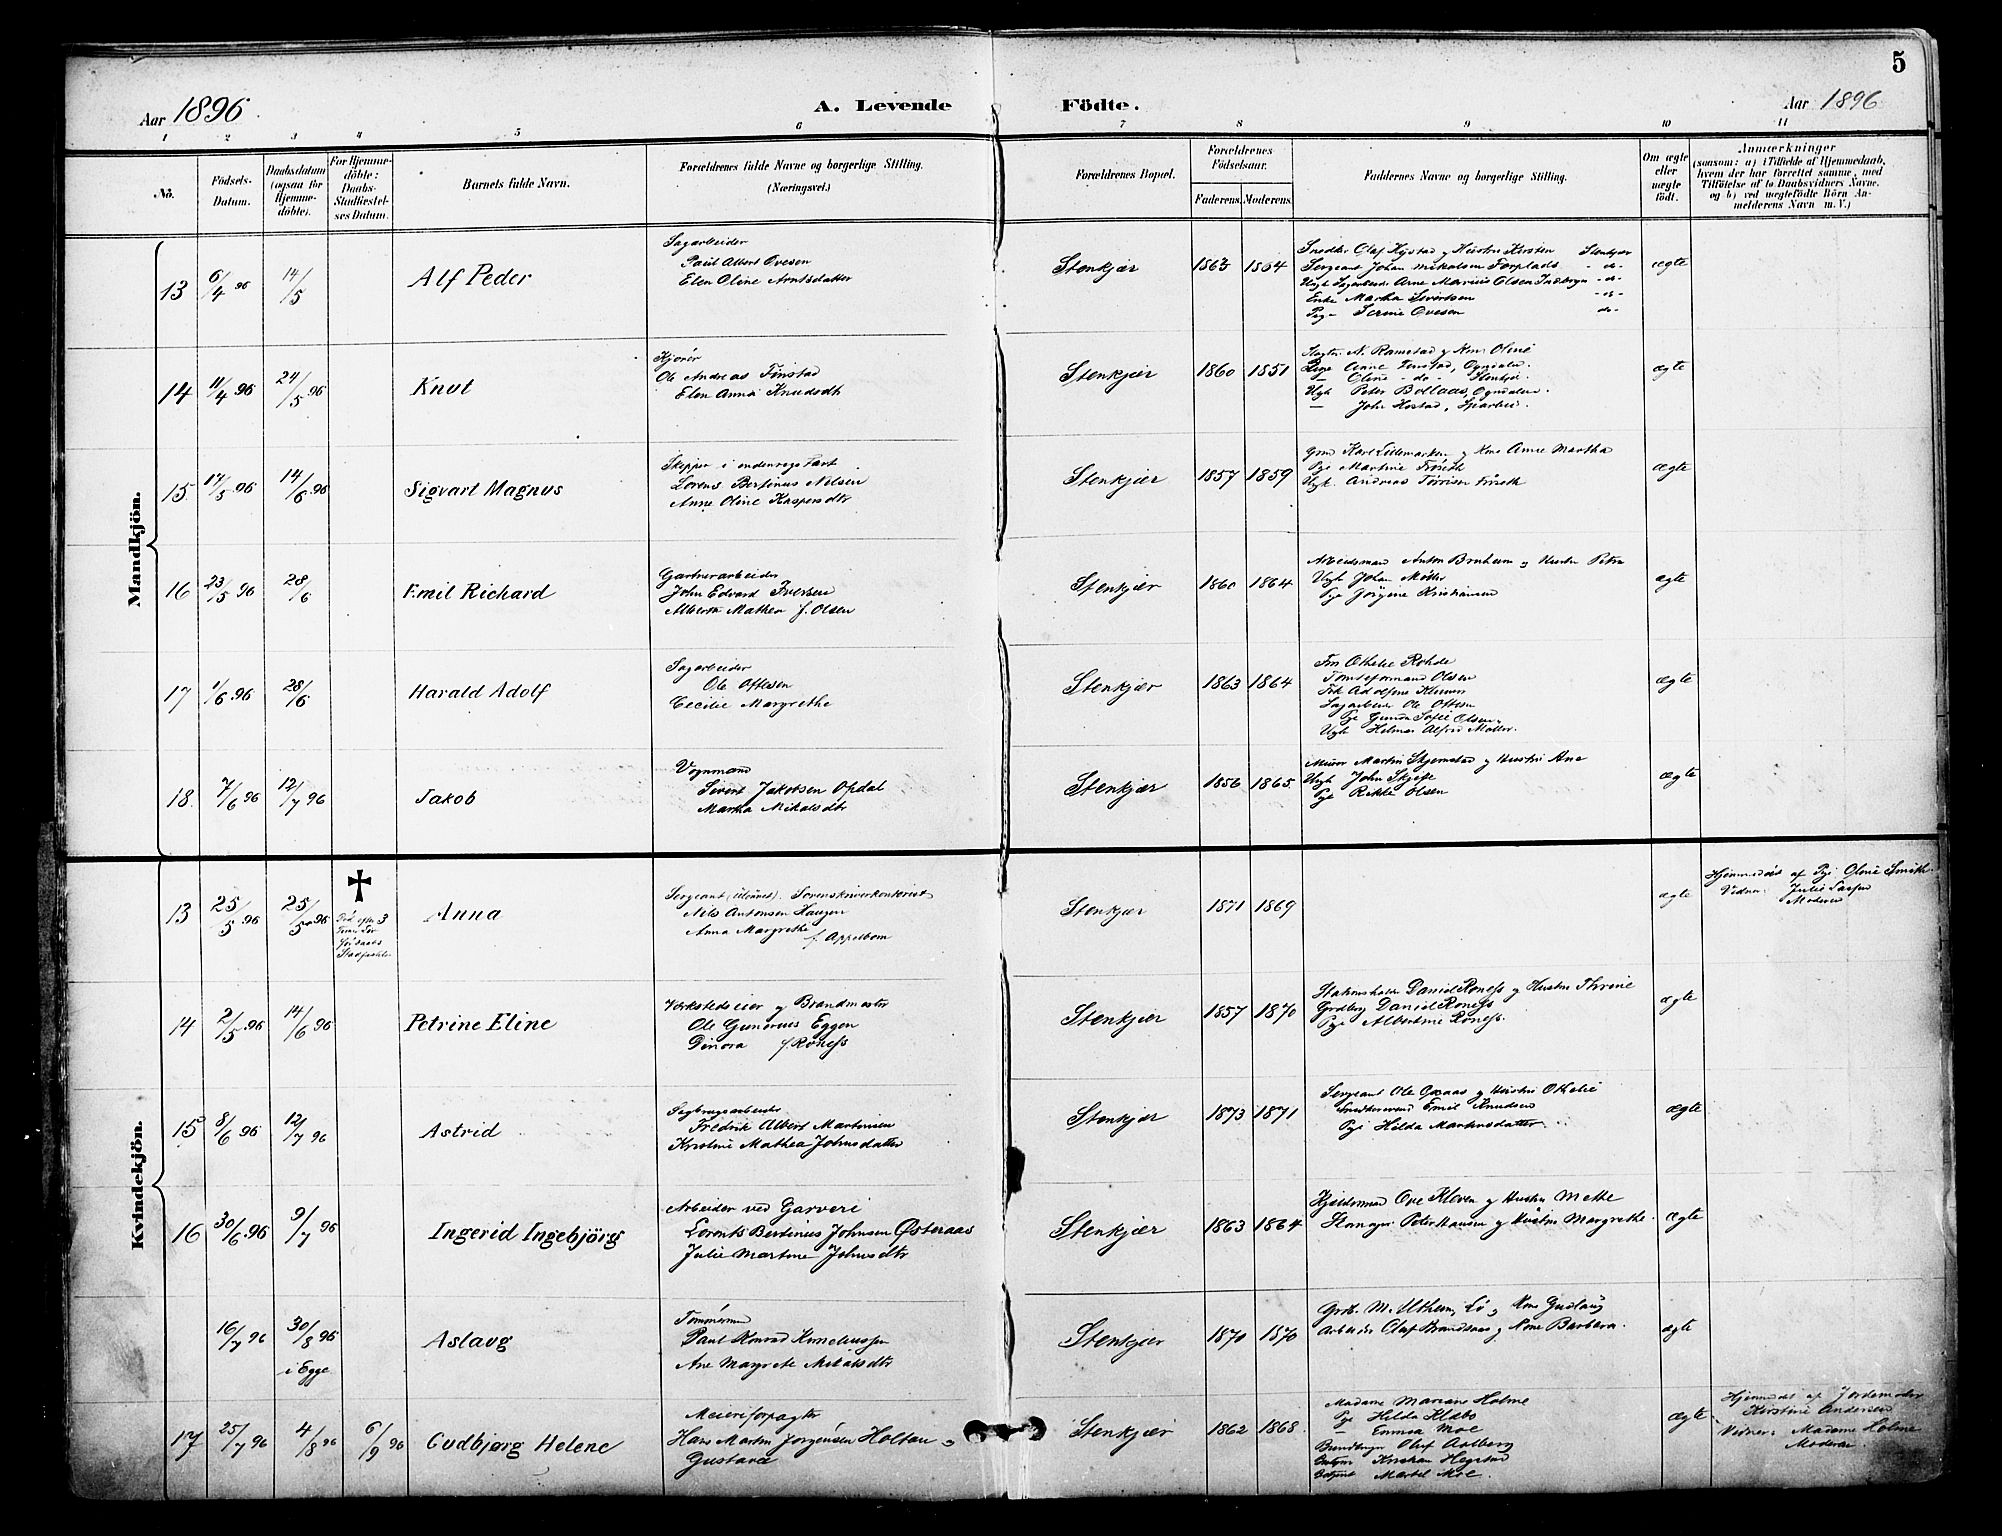 5
Aar 1896
A. Levende Födte.
Aar 1896
1 2 3 4 5 6 7 8 9 10 11
No.
Födsels-Datum.
Daabsdatum (ogsaa for Hjemmedöbte).
For Hjemmedöbte: Daabs-Stadfæstelses Datum.
Barnets fulde Navn.
Forældrenes fulde Navne og borgerlige Stilling.
(Næringsvei.)
Forældrenes Bopæl.
Forældrenes Födselsaar.
Faderens. Moderens.
Faddernes Navne og borgerlige Stilling.
Om ægte eller uægte födt.
Anmærkninger
(saasom: a) i Tilfælde af Hjemmedaab,
hvem der har forrettet samme, med
Tilföielse af to Daabsvidners Navne.
og b) ved uegtefödte Börn An-
melderens Navn m. V.)
Mandkjön.
13 6/4 96 14/5 Alf Peder
Sagarbeider
Paul Albert Ovesen
Elen Oline Arntsdatter
Stenkjær 1863 1864
Snedker Olaf Hystad og Hustru Kirsten Stenkjær
Sergeant Johan Mikalsen Forplads -do-
Ungk Sagarbeider Arne Marius Olsen -do-
Enke Martha Sivertsen -do-
Pig- Serine Ovesen do-
ægte
14 11/4 96 24/5 96 Knut
Kjører
Ole Andreas Tønstad
Elen Anna Knudsdtr
Stenkjær 1860 1851
N. Ramstad og Kone Oline
Pige Anne Tønstad, Ogndalen
- Oline -do- Stenkjær
Ungk Peter Bollaas, Ogndalen.
- John Hostad, Sparbu.
ægte
15 17/5 96 14/6 96 Sigvart Magnus
Skipper i indenrigs Fart
Lorens Bertinus Nilsen
Anne Oline Kaspersdtr
Stenkjær 1857 1859
Karl og Kone Anne Martha
Pige Martine
Ungk. Andreas
ægte
16 23/5 96 28/6 Emil Richard
Gartnerarbeider
John Edvard Iversen
Alberta Mathea f. Olsen
Stenkjær 1860 1864
Arbeidsmand Anton Bruheim og Hustru Petra
Ungk Johan Møller
Pige Jørgine Kristiansen
ægte
17 1/6 96 28/6 Harald Adolf
Sagarbeider
Ole Ottesen
Cecilie Margrethe
Stenkjær 1863 1864
Fru Othelie Rohde
Tomteformand Olsen
Frk Adolfine Klemm
Sagarbeider Ole Ottesen
Pige Gunda Sofie Olsen,
Ungk Helmer Alfred Møller.
ægte
18 7/6 96 12/7 96 Jakob
Vognmand
Sivert Jakobsen Opdal
Martha Mikalsdtr
Stenkjær 1856 1865
Murer Martin Skjemstad og Hustru Ane
Ungk John Skjefte
Pige Rikke Olsen
ægte
Kvindekjön.
13 25/5 96 25/5 96 Anna
Død efter 3
Timer før
Stadfæstelse
Sergeant Sorenskriverkontorist
Nils Antonsen Haugen
Anna Margrethe
f. Appelbom
Stenkjær 1871 1869
ægte
Hjemmedøbt af Pige Oline Smith.
Vidner: Julie
Moderen
14 2/5 96 14/6 96 Petrine Eline
Værkstedseier og Brandmester
Ole Gunerius Eggen
Dinora f. Roness
Stenkjær 1857 1870
Stationsholder Daniel Roness og Hustru Thrine
Grdbrg Daniel Roness
Pige Albertine Roness.
ægte
15 8/6 96 12/7 96 Astrid
Sagbrugsarbeider
Fredrik Albert Martinsen
Kristine Mathea Johnsdatter
Stenkjær 1873 1871
Sergeant Ole Opaas og Hustru Othelie
Snedkersvend Emil Knudsen
Pige Hilda Martinsdatter
ægte
16 30/6 96 9/7 96 Ingerid Ingebjörg
Arbeider ved Garveri
Lorents Bertinius Johnsen Østeraas
Julie Martine Johnsdtr
Stenkjær 1863 1864
Ove Kleven og Hustru Mette
Peter Hansen og Hustru Margrethe.
ægte
16/7 96 30/8 96
i Egge
Aslaug
Tømmermd
Paul Konrad Korneliussen
Ane Margrete Mikalsdtr
Stenkjær 1870 1870
Grdb. M. Utheim, Lø og Kone Gudlaug
Arbeider Olaf Brandsaas og Kone Barbera.
ægte
17 25/7 96 4/8 96 6/9 96 Gudbjørg Helene
Meieriforpagter
Hans Martin Jørgensen Holtan og
Gustava
Stenkjær 1862 1868
Madame Mariane Holme
Pige Hilda Klabo
- Emma Moe
Olaf Aalberg
Kristian Hegstad
Martel Moe.
ægte
Hjemmedøbt af Jordemoder
Kirstine Andersen
Vidner: Madame Holme
Moderen